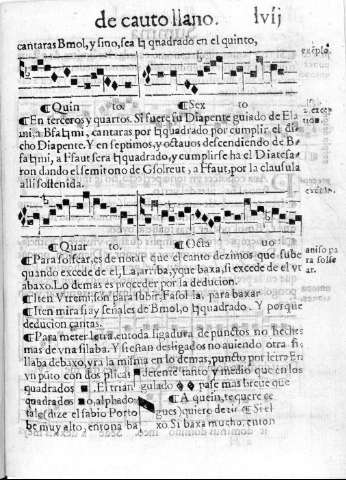 de cauto llano. lvij
cantaras Bmol, y sino, sea ♮ quadrado en el quinto,
exēplo.
¶ Quin to. ¶ Sex to
¶ En terceros y quartos. Si fuere su Diapente guiado de Ela
mi a Bfa♮mi, cantaras por ♮ quadrado por cumplir el di
cho Diapente. Y en septimos, y octauos descendiendo de B-
fa♮mi, a Ffaut sera ♮ quadrado, y cumplirse ha el Diatesa-
ron dando el semitono de Gsolreut, a Ffaut, por la clausula
alli sostenida.
exēplo.
¶ Quar to, ¶ Octa uo
¶ Para solfear, es de notar que el canto dezimos que sube
quando excede de el, La, arriba, y que baxa, si excede de el vt
abaxo. Lo demas es proceder por la deducion.
para solfe
ar.
¶ Iten Vtremi, son para subir. Fasol la, para baxar
¶ Iten mira si ay señales de Bmol, o ♮ quadrado. Y porque
deducion cantas.
¶ Para meter letra, en toda ligadura de punctos no heches
mas de vna silaba. Y sean desligados no auiendo otra si
llaba debaxo, yra la misma en lo demas, punto por letra En
vn pūto con dos plicas detente tanto y medio que en los
quadrados . El trian gulado pase mas breue que
quadrados o, alphado ¶ A quein, te quer
tale (dize el sabio Porto gues) quiero
be muy alto, entona ba xo. Si baxa mucho, enton